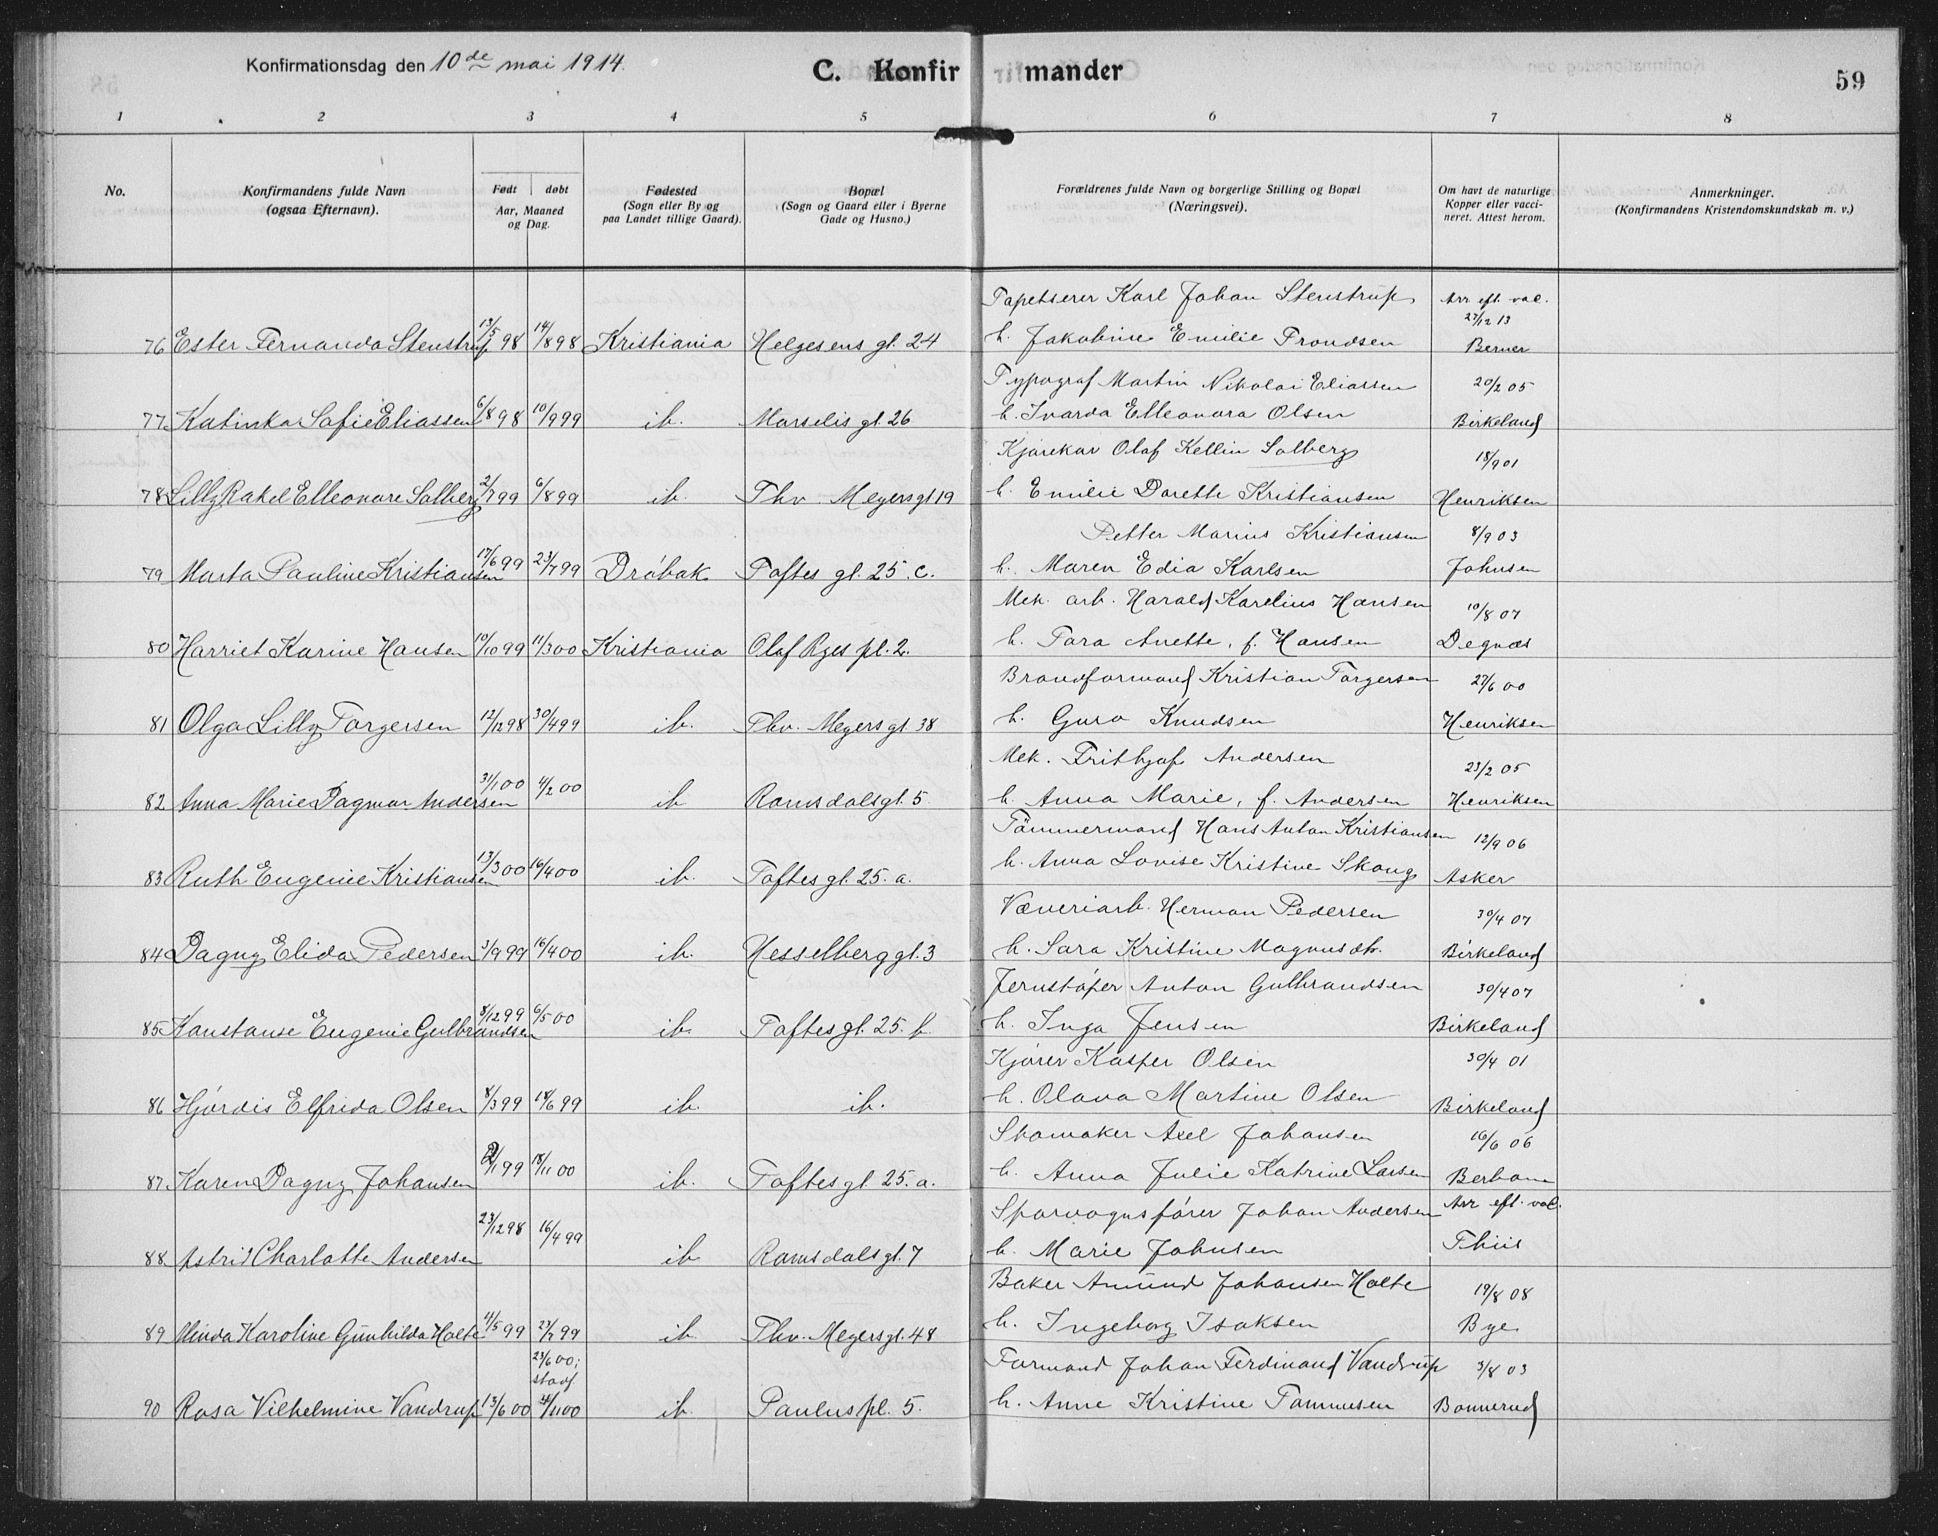 Konfirmationsdag den 10de mai 1914.
C. Konfirmander
59
1 2 3 4 5 6 7 8
No.
Konfirmandens fulde Navn
(ogsaa Efternavn).
Født døbt
Aar, Maaned
og Dag.
Fødested
(Sogn eller By og
paa Landet tillige Gaard).
Bopæl
(Sogn og Gaard eller i Byerne
Gade og Husno.)
Forældrenes fulde Navn og borgerlige Stilling og Bopæl
(Næringsvei).
Om havt de naturlige
Kopper eller vacci-
neret. Attest herom.
Anmerkninger.
(Konfirmandens Kristendomskundskab m. v.)
Tapetserer Karl Johan Stenstrup Arr eft. vac.
27/12 13
76 Ester Fernanda Stenstrup 13/5 98 14/8 98 Kristiania Helgesens gt. 24 h. Jakobine Emilie Trondsen Berner
Typograf Martin Nikolai Eliassen 20/2 05
77 Katinka Sofie Eliassen 6/8 98 10/9 99 ib. Marselis gt. 26 h. Ivarda Elleonora Olsen Birkeland
Kjørekar Olaf Kellin Solberg 18/9 01
78 Lilly Rakel Elleonore Solberg 2/7 99 6/8 99 ib. Thv. Meyers gt 19 h. Emilie Dorette Kristiansen Henriksen
Petter Marius Kristiansen 8/9 03
79 Marta Pauline Kristiansen 17/6 99 23/7 99 Drøbak Toftes gt. 25. c. h. Maren Edia Karlsen Johnsen
Mek. arb. Harald Karelius Hansen 10/8 07
80 Harriet Karine Hansen 10/10 99 11/3 00 Kristiania Olaf Ryes pl. 2. h. Tora Anette, f. Hansen Degnæs
Brandformand Kristian Torgersen 27/6 00
81 Olga Lilly Torgersen 12/12 98 30/4 99 ib. Thv. Meyers gt. 38 h. Guro Knudsen Henriksen
Mek. Frithjof Andersen 23/2 05
82 Anna Marie Dagmar Andersen 31/1 00 4/2 00 ib. Romsdals gt. 5. h. Anna Marie, f. Andersen Henriksen
Tømmermand Hans Anton Kristiansen 12/9 06
83 Ruth Eugenie Kristiansen 13/3 00 16/4 00 ib. Toftes gt. 25. a. h. Anna Lovise Kristine Skoug Asker
Væveriarb. Herman Pedersen 30/4 07
84 Dagny Elida Pedersen 3/9 99 16/4 00 ib. Hesselberg gt. 3 h. Sara Kristine Magnusdtr. Birkeland
Jernstøper Anton Gulbrandsen 30/4 07
85 Konstanse Eugenie Gulbrandsen 8/12 99 6/5 00 ib. Toftes gt. 25. b. h. Inga Jensen Birkeland
Kjører Kasper Olsen 30/4 01
86 Hjørdis Elfrida Olsen 8/3 99 18/6 99 ib. ib. h. Olava Martine Olsen Birkeland
Skomaker Axel Johansen 16/6 06
87 Karen Dagny Johansen 2/1 99 18/11 00 ib. Toftes gt. 25. a. h. Anna Julie Katrine Larsen
Sporvognsfører Johan Andersen Arr eft. vac.
88 Astrid Charlotte Andersen 23/12 98 16/4 99 ib Romsdals gt. 7 h. Marie Johnsen Thiis
Baker Amund Johansen Holte 19/8 08
89 Minda Karoline Gunhilda Holte 11/5 99 23/7 99 ib Thv. Meyers gt. 48 h. Ingeborg Isaksen Bye
23/6 00; Formand Johan Ferdinand Vandrup 3/8 03
stadf
90 Rosa Vilhelmine Vandrup 13/6 00 4/11 00 ib. Paulus pl. 5. h. Anne Kristine Tommesen Bonnerud